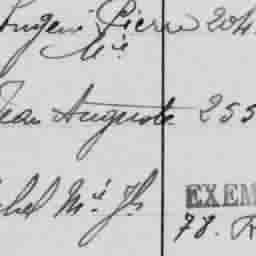 Eugène Pierre 204
Mie
Jean Auguste 255
Mie Jh EXEM
78. R